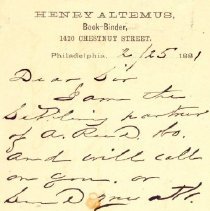 HENRY ALTEMUS,
Book-Binder,
1420 CHESTNUT STREET.
Philadelphia, 2/25 1881
Dear Sir
I am the
Settling partner
of A. Reed & Co.
and will call
on you. or
Send you